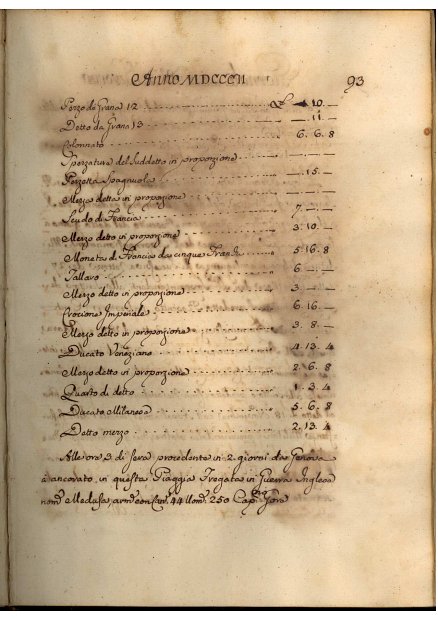 Anno MDCCCII 93
Pezzo da Grana 12 £ — 10. —
Detto da Grana 13 — 11. —
Colonnato 6. 6. 8
Spezzatura del Suddetto in proporzione — . — . —
Pezzetta Spagnuola — . 15. —
Mezza detta in proporzione — . — . —
Scudo di Francia 7. — . —
Mezzo detto in proporzione 3. 10. —
Moneta di Francia da cinque Franchi 5. 16. 8
Tallaro 6. — . —
Mezzo detto in proporzione 3. — . —
Crocione Imperiale 6. 16. —
Mezzo detto in proporzione 3. 8. —
Ducato Veneziano 4. 13. 4
Mezzo detto in proporzione 2. 6. 8
Quarto di detto 1. 3. 4
Ducato Milanese 5. 6. 8
Detto mezzo 2. 13. 4
Alle ore 3 di sera procedente in 2 giorni da Genova
à ancorato in questa Piaggia Fregata in Guerra Inglesa
nom. Medusa, arm. con Can. 44 Uom. 250 Cap. Gore